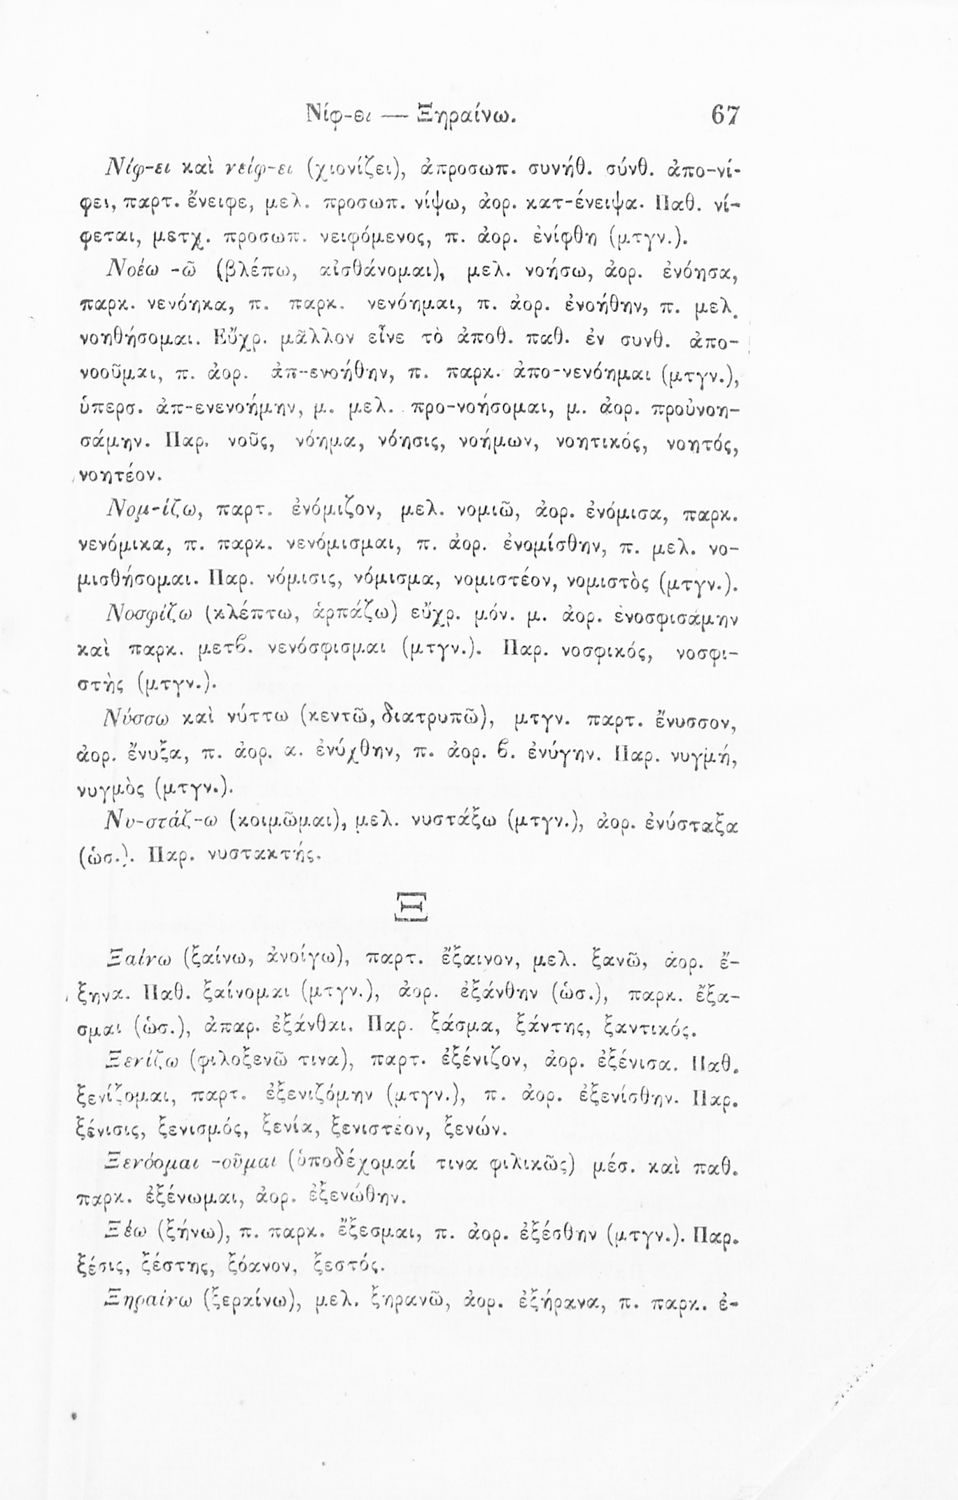 Νίφ-ει — Ξηραίνω. 67
Νίφ-ει καὶ νείφ-ει (χιονίζει), ἀπροσωπ. συνήθ. σύνθ. ἀπο-νί-
φει, παρτ. ἔνειφε, μελ. προσωπ. νίψω, ἀορ. κατ-ένειψα. Παθ. νί-
φεται, μετχ. προσωπ. νειφόμενος, π. ἀορ. ἐνίφθη (μτγν.).
Νοέω -ῶ (βλέπω, αἰσθάνομαι), μελ. νοήσω, ἀορ. ἐνόησα,
παρκ. νενόηκα, π. παρκ. νενόημαι, π. ἀορ. ἐνοήθην, π. μελ.
νοηθήσομαι. Εὔχρ. μᾶλλον εἶνε τὸ ἀποθ. παθ. ἐν συνθ. ἀπο-
νοοῦμαι, π. ἀορ. ἀπ-ενοήθην, π. παρκ. ἀπο-νενόημαι (μτγν.),
ὑπερσ. ἀπ-ενενοήμην, μ. μελ. προ-νοήσομαι, μ. ἀορ. προὐνοη-
σάμην. Παρ. νοῦς, νόημα, νόησις, νοήμων, νοητικός, νοητός,
νοητέον.
Νομ-ίζω, παρτ. ἐνόμιζον, μελ. νομιῶ, ἀορ. ἐνόμισα, παρκ.
νενόμικα, π. παρκ. νενόμισμαι, π. ἀορ. ἐνομίσθην, π. μελ. νο-
μισθήσομαι. Παρ. νόμισις, νόμισμα, νομιστέον, νομιστὸς (μτγν.).
Νοσφίζω (κλέπτω, ἁρπάζω) εὔχρ. μόν. μ. ἀορ. ἐνοσφισάμην
καὶ παρκ. μετϐ. νενόσφισμαι (μτγν.). Παρ. νοσφικός, νοσφι-
στὴς (μτγν.).
Νύσσω καὶ νύττω (κεντῶ, διατρυπῶ), μτγν. παρτ. ἔνυσσον,
ἀορ. ἔνυξα, π. ἀορ. α. ἐνύχθην, π. ἀορ. ϐ. ἐνύγην. Παρ. νυγμή,
νυγμὸς (μτγν.).
Νυ-στάζ-ω (κοιμῶμαι), μελ. νυστάξω (μτγν.), ἀορ. ἐνύσταξα
(ὡσ.). Παρ. νυστακτής.
Ξ
Ξαίνω (ξαίνω, ἀνοίγω), παρτ. ἔξαινον, μελ. ξανῶ, ἀορ. ἔ-
ξηνα. Παθ. ξαίνομαι (μτγν.), ἀορ. ἐξάνθην (ὡσ.), παρκ. ἔξα-
σμαι (ὡσ.), ἀπαρ. ἐξάνθαι. Παρ. ξάσμα, ξάντης, ξαντικός.
Ξενίζω (φιλοξενῶ τινα), παρτ. ἐξένιζον, ἀορ. ἐξένισα. Παθ.
ξενίζομαι, παρτ. ἐξενιζόμην (μτγν.), π. ἀορ. ἐξενίσθην. Παρ.
ξένισις, ξενισμός, ξενία, ξενιστέον, ξενών.
Ξενόομαι -οῦμαι (ὑποδέχομαί τινα φιλικῶς) μέσ. καὶ παθ.
παρκ. ἐξένωμαι, ἀορ. ἐξενώθην.
Ξέω (ξήνω), π. παρκ. ἔξεσμαι, π. ἀορ. ἐξέσθην (μτγν.). Παρ.
ξέσις, ξέστης, ξόανον, ξεστός.
Ξηραίνω (ξεραίνω), μελ. ξηρανῶ, ἀορ. ἐξήρανα, π. παρκ. ἐ-